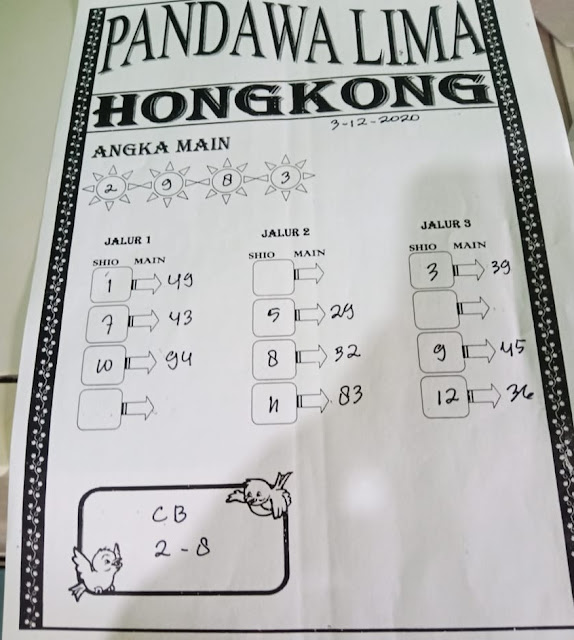 PANDAWA LIMA
HONGKONG
3-12-2020
ANGKA MAIN
2 9 8 3
JALUR 1
SHIO MAIN
1 49
7 43
10 94
JALUR 2
SHIO MAIN
5 29
8 32
11 83
JALUR 3
SHIO MAIN
3 39
9 45
12 36
CB
2-8